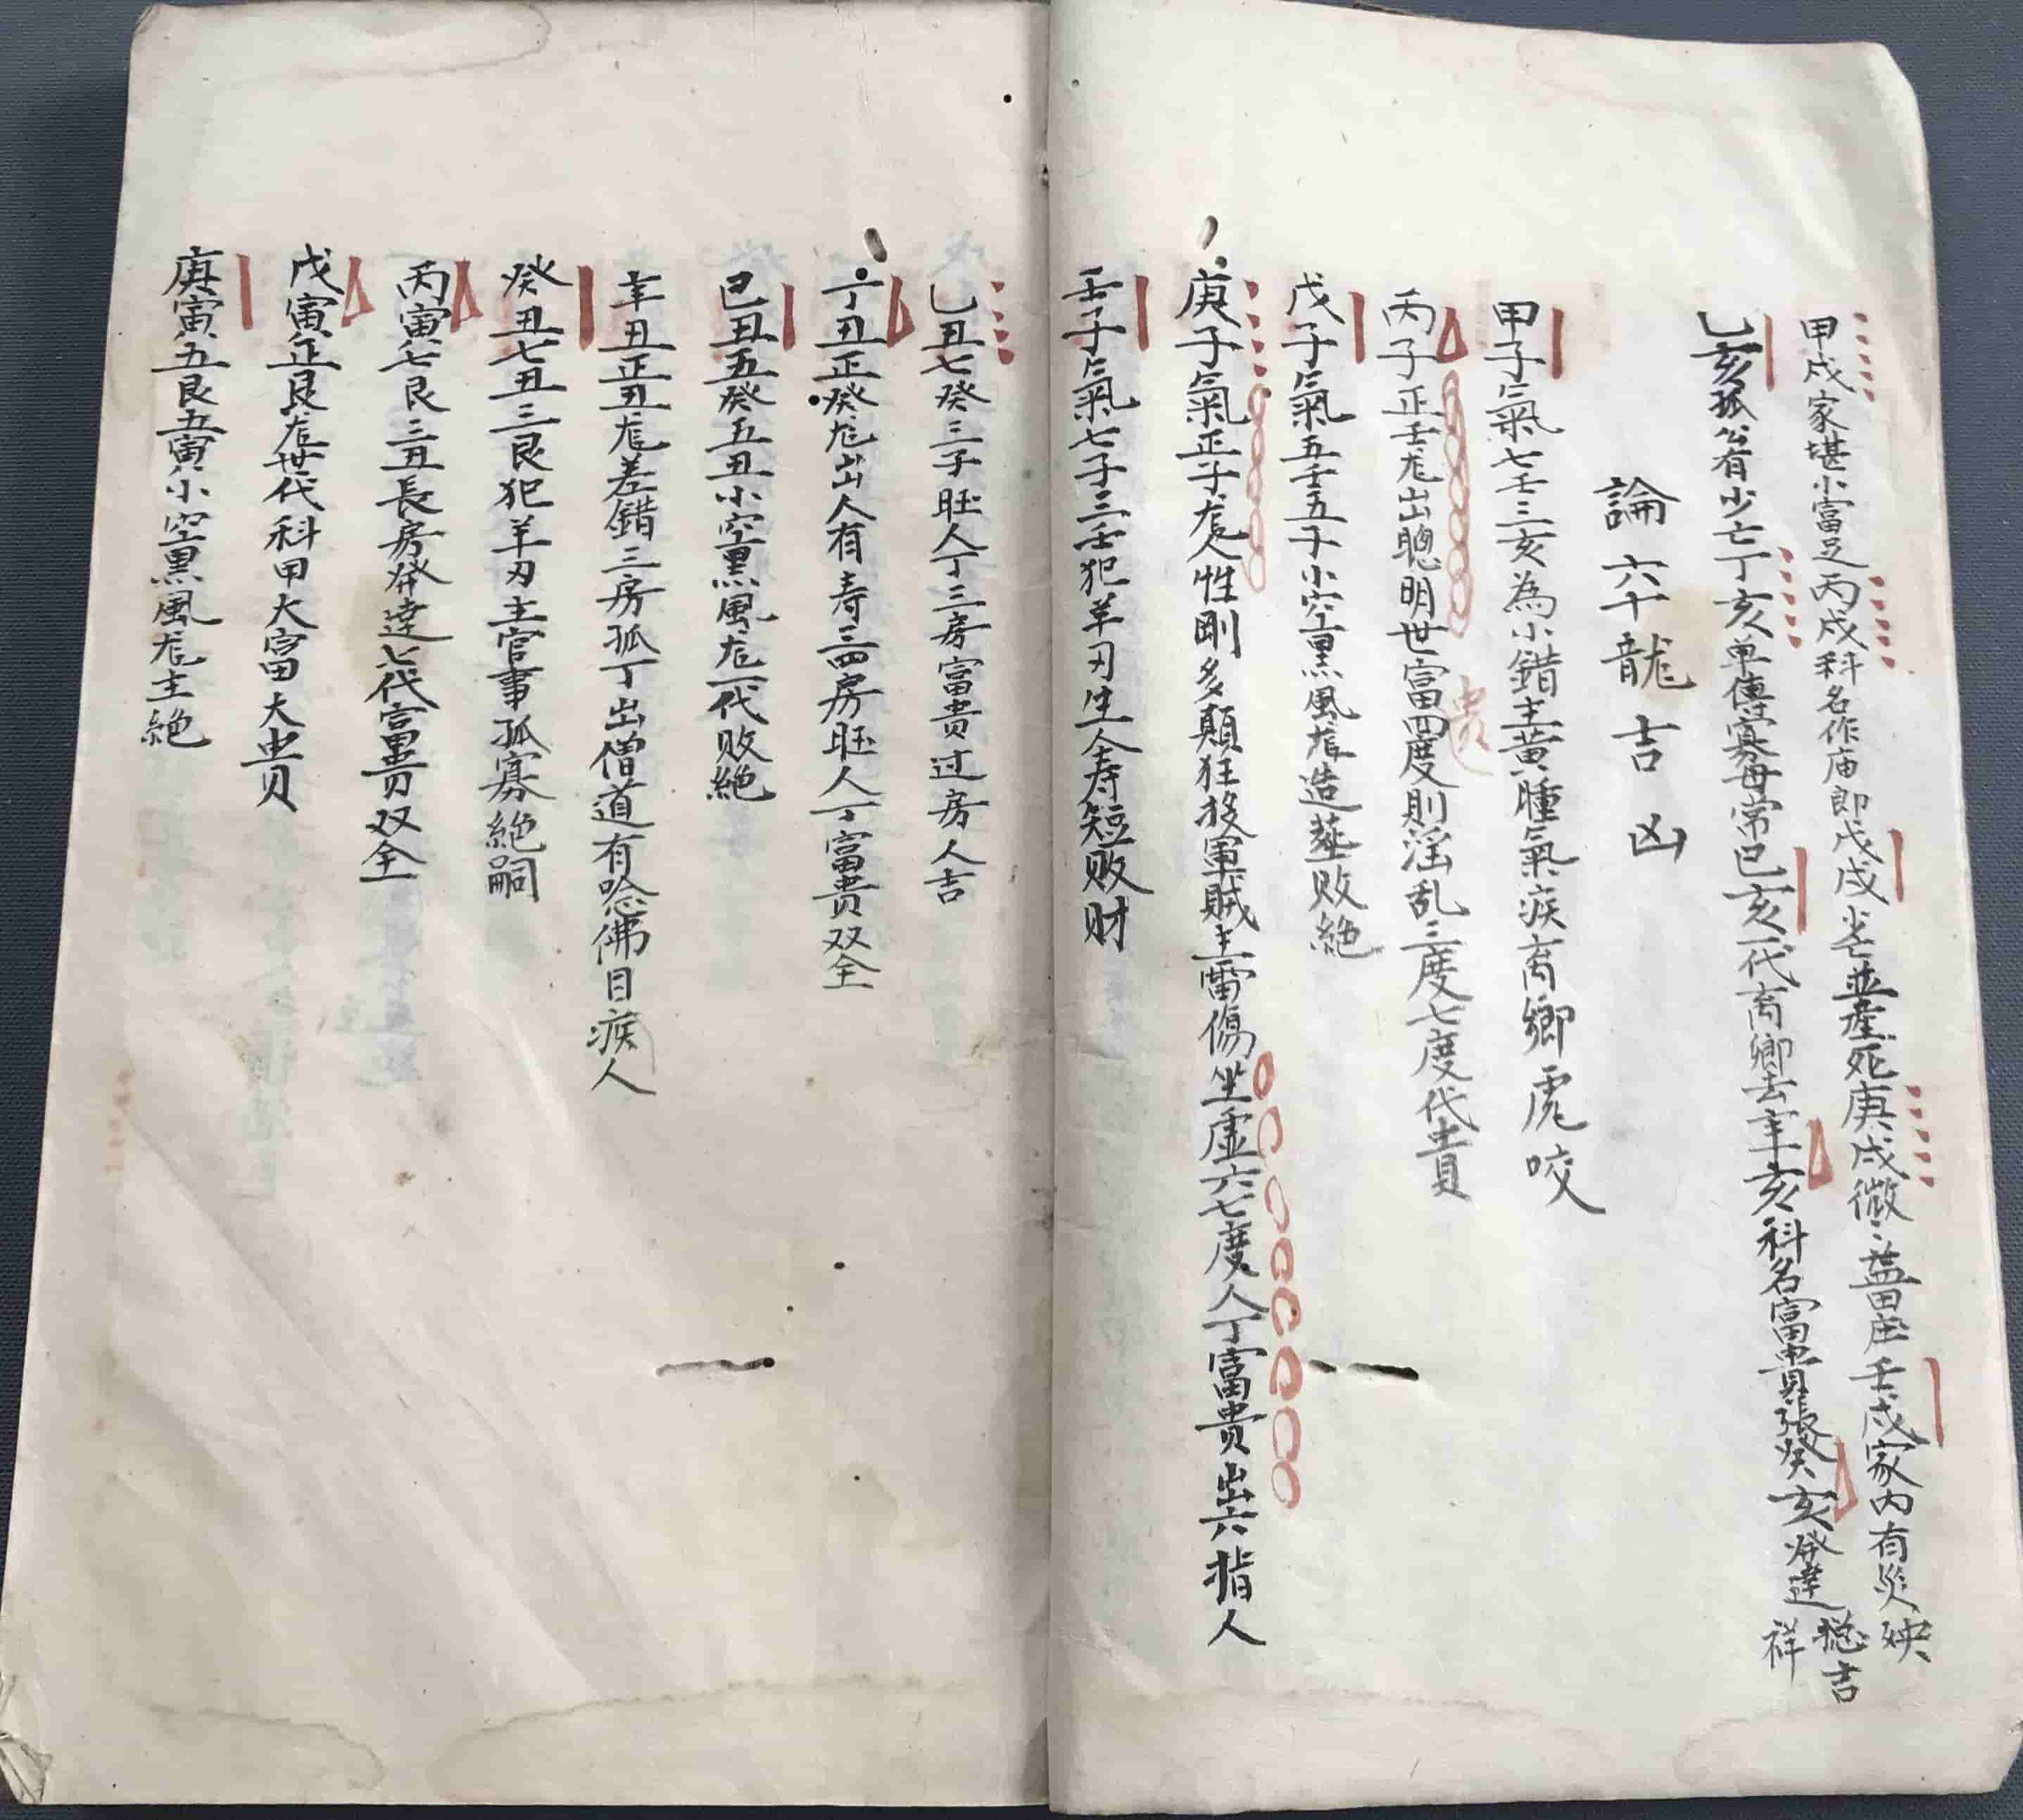 甲戌家堪小富足丙戌科名作庙即戊戌少亡並產死庚戌微々益田庄壬戌家内有災殃
乙亥孤翁有少亡丁亥单傳寡母常己亥一代离鄉去辛亥科名富貴張癸亥發達穏吉祥
論六十龍吉凶
甲子氣七壬三亥為小錯主黄腫氣疾离鄉虎咬
丙子正壬龙出聰明世富四度則淫乱三度七度代貴
貴
戊子氣五壬五子小空黑風龙造塟败絶
庚子氣正子龙人性剛多顛狂投軍賊主雷傷坐虚六七度人丁富貴出六指人
壬子氣七子三壬犯羊刃生人寿短败财
乙丑七癸三子旺人丁三房富貴过房人吉
丁丑正癸龙出人有寿三四房旺人丁富貴双全
己丑五癸五丑小空黑風龙一代败絶
辛丑正丑龙差錯三房孤丁出僧道有唸佛目疾人
癸丑七丑三艮犯羊刃主官事孤寡絶嗣
丙寅七艮三丑長房發達七代富貴双全
戊寅正艮龙世代科甲大富大貴
庚寅五艮五寅小空黑風龙主絶